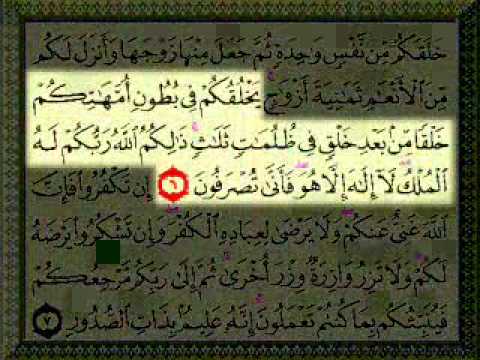 خَلَقَكُم مِّن نَّفْسٍ وَٰحِدَةٍ ثُمَّ جَعَلَ مِنْهَا زَوْجَهَا وَأَنزَلَ لَكُم
مِّنَ ٱلْأَنْعَٰمِ ثَمَٰنِيَةَ أَزْوَٰجٍ ۚ يَخْلُقُكُمْ فِي بُطُونِ أُمَّهَٰتِكُمْ
خَلْقًا مِّنۢ بَعْدِ خَلْقٍ فِي ظُلُمَٰتٍ ثَلَٰثٍ ۚ ذَٰلِكُمُ ٱللَّهُ رَبُّكُمْ لَهُ
ٱلْمُلْكُ ۖ لَآ إِلَٰهَ إِلَّا هُوَ ۖ فَأَنَّىٰ تُصْرَفُونَ ٦ إِن تَكْفُرُوا۟ فَإِنَّ
ٱللَّهَ غَنِيٌّ عَنكُمْ ۖ وَلَا يَرْضَىٰ لِعِبَادِهِ ٱلْكُفْرَ ۖ وَإِن تَشْكُرُوا۟ يَرْضَهُ
لَكُمْ ۗ وَلَا تَزِرُ وَازِرَةٌ وِزْرَ أُخْرَىٰ ۗ ثُمَّ إِلَىٰ رَبِّكُم مَّرْجِعُكُمْ
فَيُنَبِّئُكُم بِمَا كُنتُمْ تَعْمَلُونَ ۚ إِنَّهُۥ عَلِيمٌۢ بِذَاتِ ٱلصُّدُورِ ٧